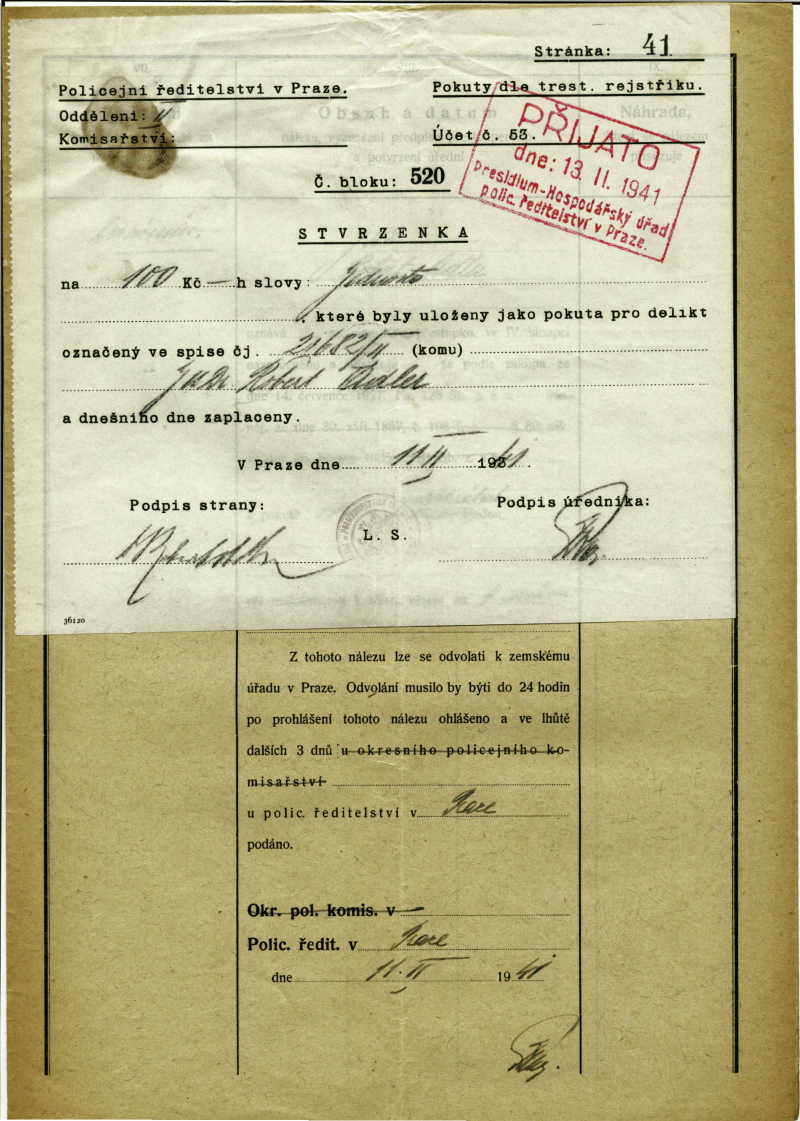 Stránka: 41
Policejní ředitelství v Praze.
Pokuty dle trest. rejstříku.
Oddělení: II
Komisařství:
Účet č. 53.
PŘIJATO
dne: 13. II. 1941
Presidium-Hospodářský úřad
polic. ředitelství v Praze.
Č. bloku: 520
STVRZENKA
na 100 Kč — h slovy: Jedensto
, které byly uloženy jako pokuta pro delikt
označený ve spise čj. 21682/II (komu)
JUDr Robert Adler
a dnešního dne zaplaceny.
V Praze dne 11/II 1941.
Podpis strany:
Podpis úředníka:
L. S.
36120
Z tohoto nálezu lze se odvolati k zemskému
úřadu v Praze. Odvolání musilo by býti do 24 hodin
po prohlášení tohoto nálezu ohlášeno a ve lhůtě
dalších 3 dnů u okresního policejního ko-
misařství
u polic. ředitelství v Praze
podáno.
Okr. pol. komis. v
Polic. ředit. v Praze
dne 11. II 1941